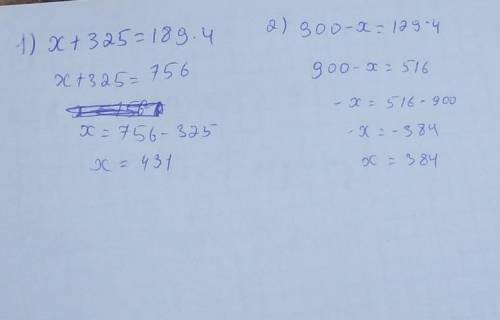 1) x + 325 = 189 · 4
x + 325 = 756
x = 756 - 325
x = 431
2) 900 - x = 129 · 4
900 - x = 516
- x = 516 - 900
- x = - 384
x = 384